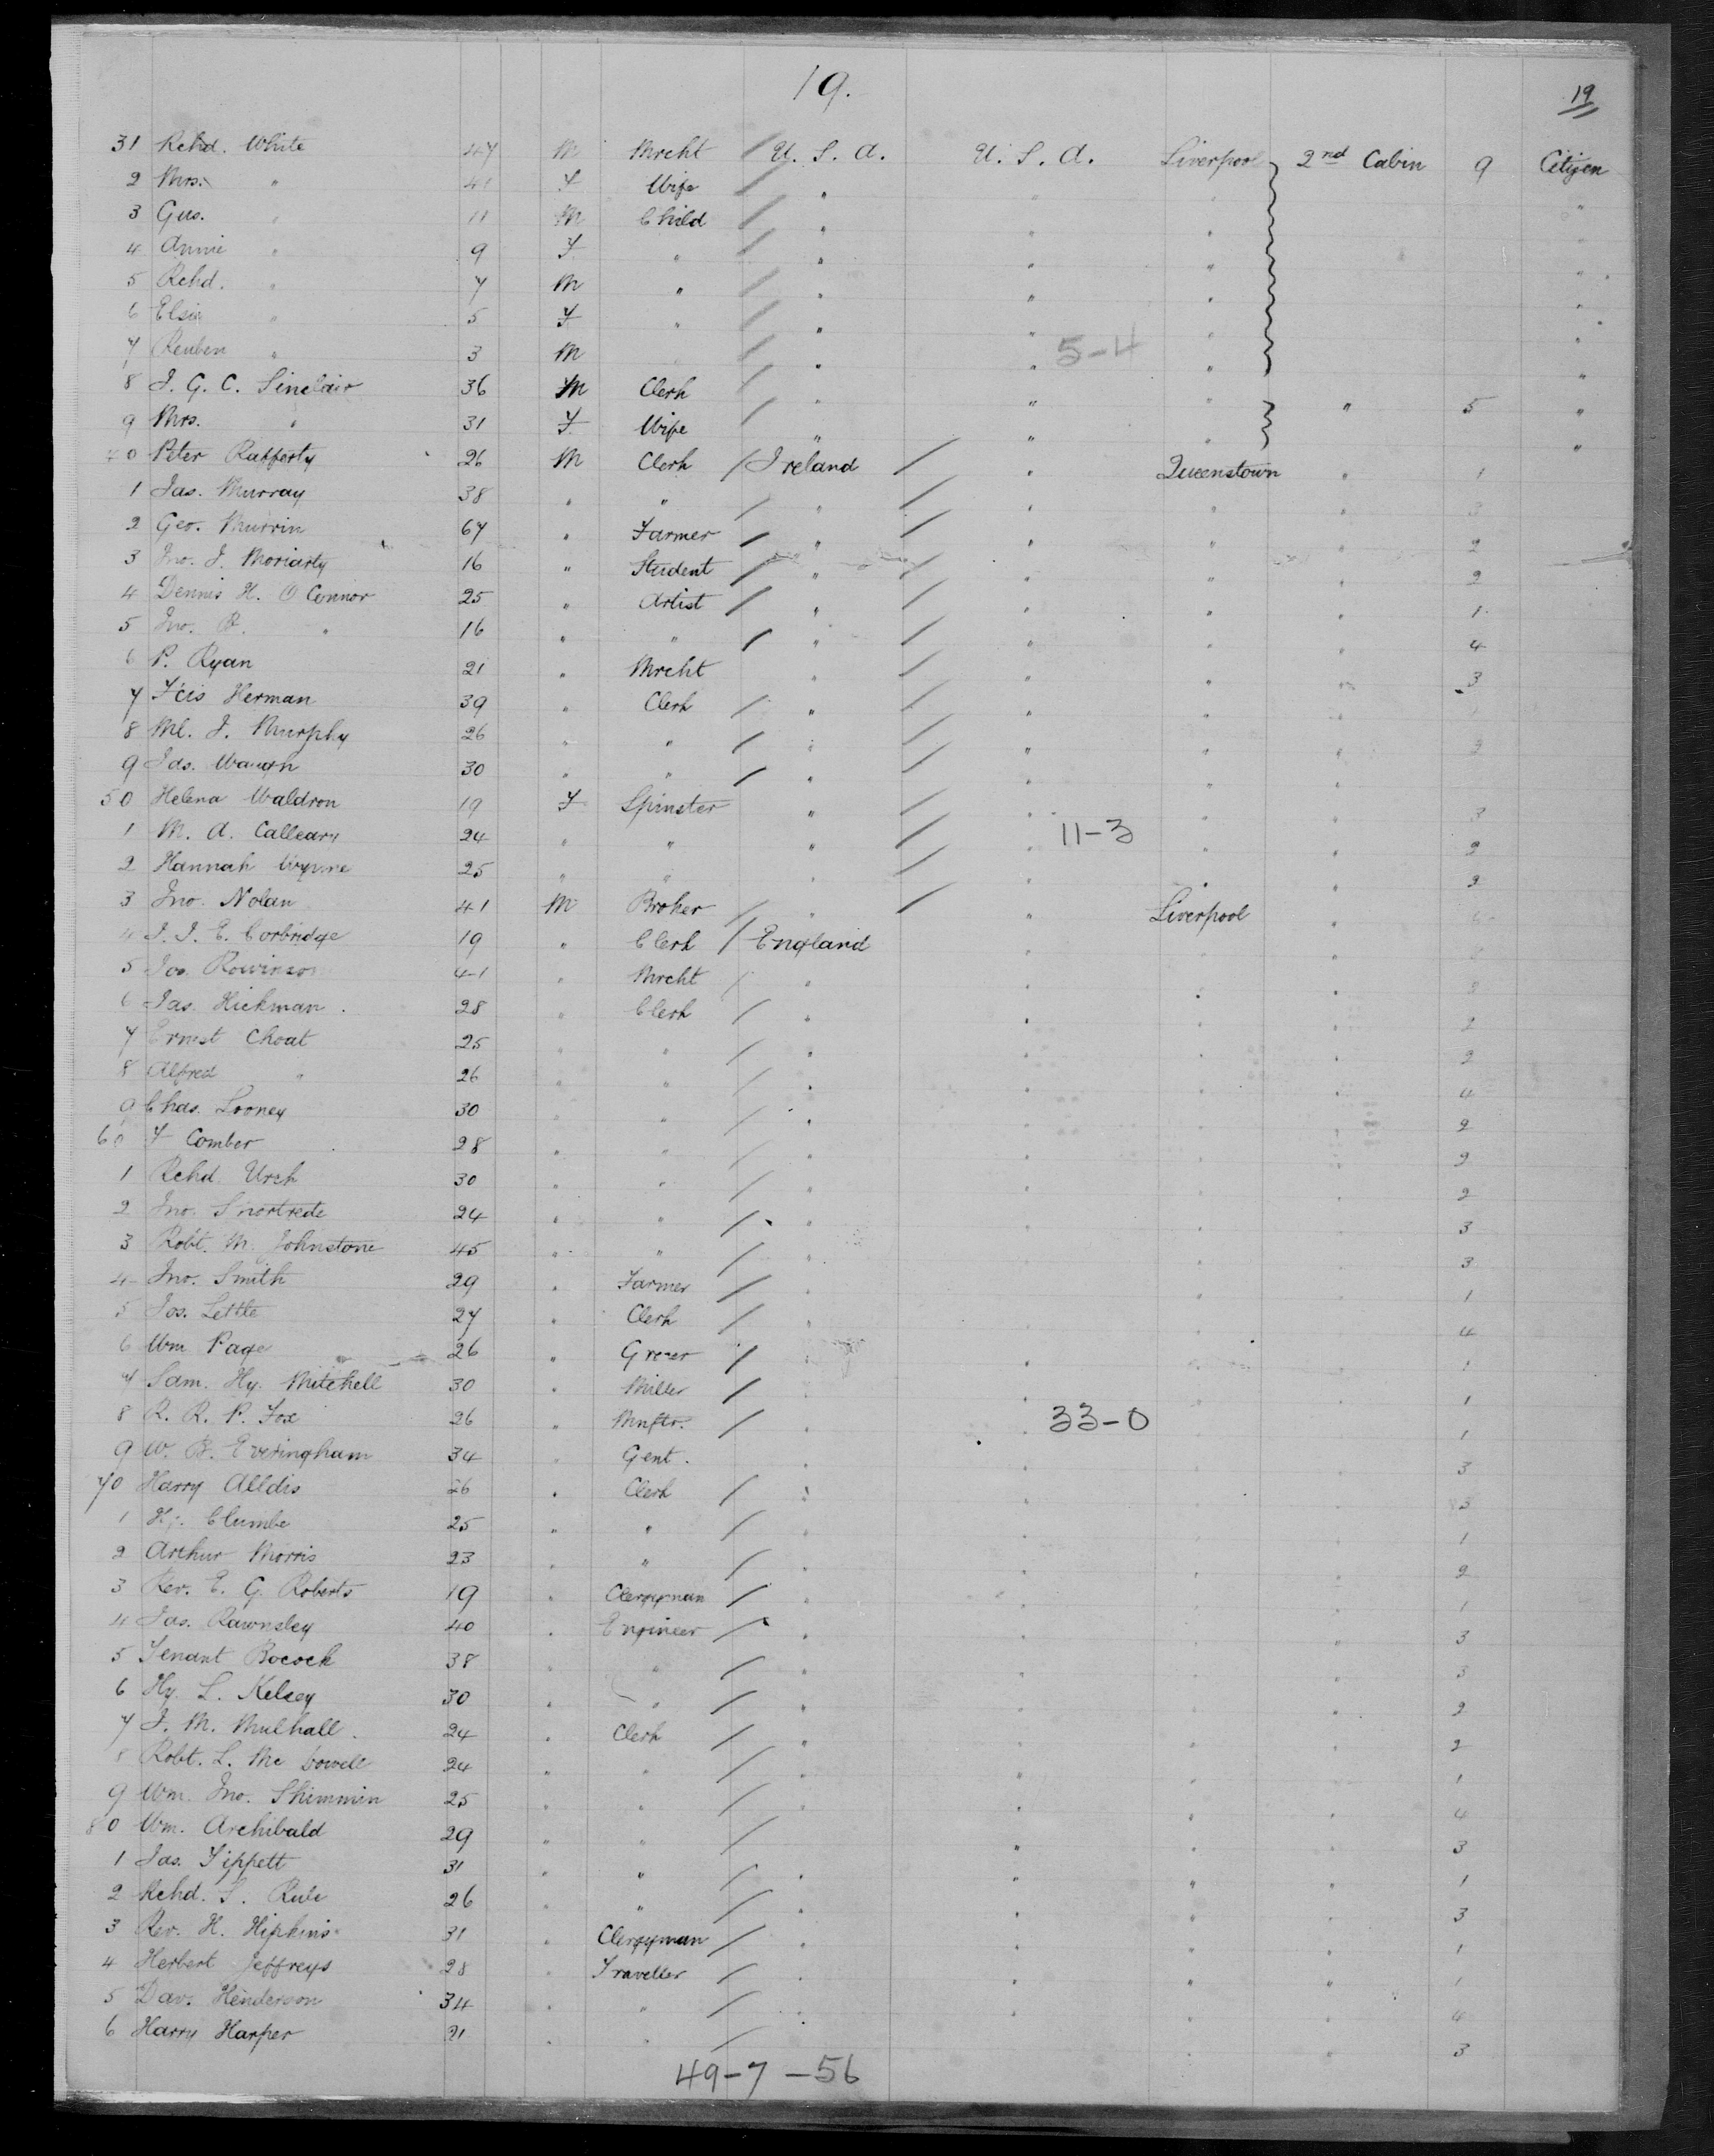 19.
19
31 Rchd. White 47 M Mrcht U. S. A. U. S. A. Liverpool 2nd Cabin 9 Citizen
2 Mrs. " 41 F Wife " " " "
3 Gus. " 11 M Child " " " "
4 Annie " 9 F " " " " "
5 Rchd. " 7 M " " " " "
6 Elsie " 5 F " " " " "
7 Reuben " 3 M " " " " 5-4
8 J. G. C. Sinclair 36 M Clerk " " " " 5 "
9 Mrs. " 31 F Wife " " " "
40 Peter Rafferty 26 M Clerk Ireland " Queenstown " 1
1 Jas. Murray 38 " " " " " " 3
2 Geo. Murrin 67 " Farmer " " " " 2
3 Jno. J. Moriarty 16 " Student " " " " 2
4 Dennis H. O Connor 25 " Artist " " " " 1
5 Jno. P. " 16 " " " " " " 4
6 P. Ryan 21 " Mrcht " " " " 3
7 F'cis Herman 39 " Clerk " " " "
8 Ml. J. Murphy 26 " " " " " " 2
9 Jas. Waugh 30 " " " " " "
50 Helena Waldron 19 F Spinster " " " " 3
1 M. A. Calleary 24 " " " 11-3 " " 2
2 Hannah Wynne 25 " " " " " " 2
3 Jno. Nolan 41 M Broker " " Liverpool "
4 J. J. E. Corbridge 19 " Clerk England " " "
5 Jos. Rowinson 41 " Mrcht " " " "
6 Jas. Hickman 28 " Clerk " " " " 2
7 Ernest Choat 25 " " " " " " 2
8 Alfred " 26 " " " " " " 4
9 Chas. Looney 30 " " " " " " 2
60 F Comber 28 " " " " " " 2
1 Rchd. Urch 30 " " " " " " 2
2 Jno. Shortrede 24 " " " " " " 3
3 Robt. M. Johnstone 45 " " " " " " 3
4 Jno. Smith 29 " Farmer " " " " 1
5 Jos. Lettle 27 " Clerk " " " " 4
6 Wm Page 26 " Grocer " " " " 1
7 Sam. Hy. Mitchell 30 " Miller " " " " 1
8 R. R. P. Fox 26 " Mnftr. " 33-0 " " 1
9 W. B. Everingham 34 " Gent. " " " " 3
70 Harry Alldis 26 " Clerk " " " " 3
1 Hy. Clumbe 25 " " " " " " 1
2 Arthur Morris 23 " " " " " " 2
3 Rev. E. G. Roberts 19 " Clergyman " " " " 1
4 Jas. Rawnsley 40 " Engineer " " " " 3
5 Tenant Bocock 38 " " " " " " 3
6 Hy. L. Kelsey 30 " " " " " " 2
7 J. M. Mulhall. 24 " Clerk " " " " 2
8 Robt. L. Mc Dowell 24 " " " " " " 1
9 Wm. Jno. Shimmin 25 " " " " " " 4
80 Wm. Archibald 29 " " " " " 3
1 Jas. Tippett 31 " " " " " " 1
2 Rchd. S. Rule 26 " " " " " " 3
3 Rev. H. Hipkins 31 " Clergyman " " " " 1
4 Herbert Jeffreys 28 " Traveller " " " " 1
5 Dav. Henderson 34 " " " " " " 4
6 Harry Harper 21 " " " " 3
49-7-56